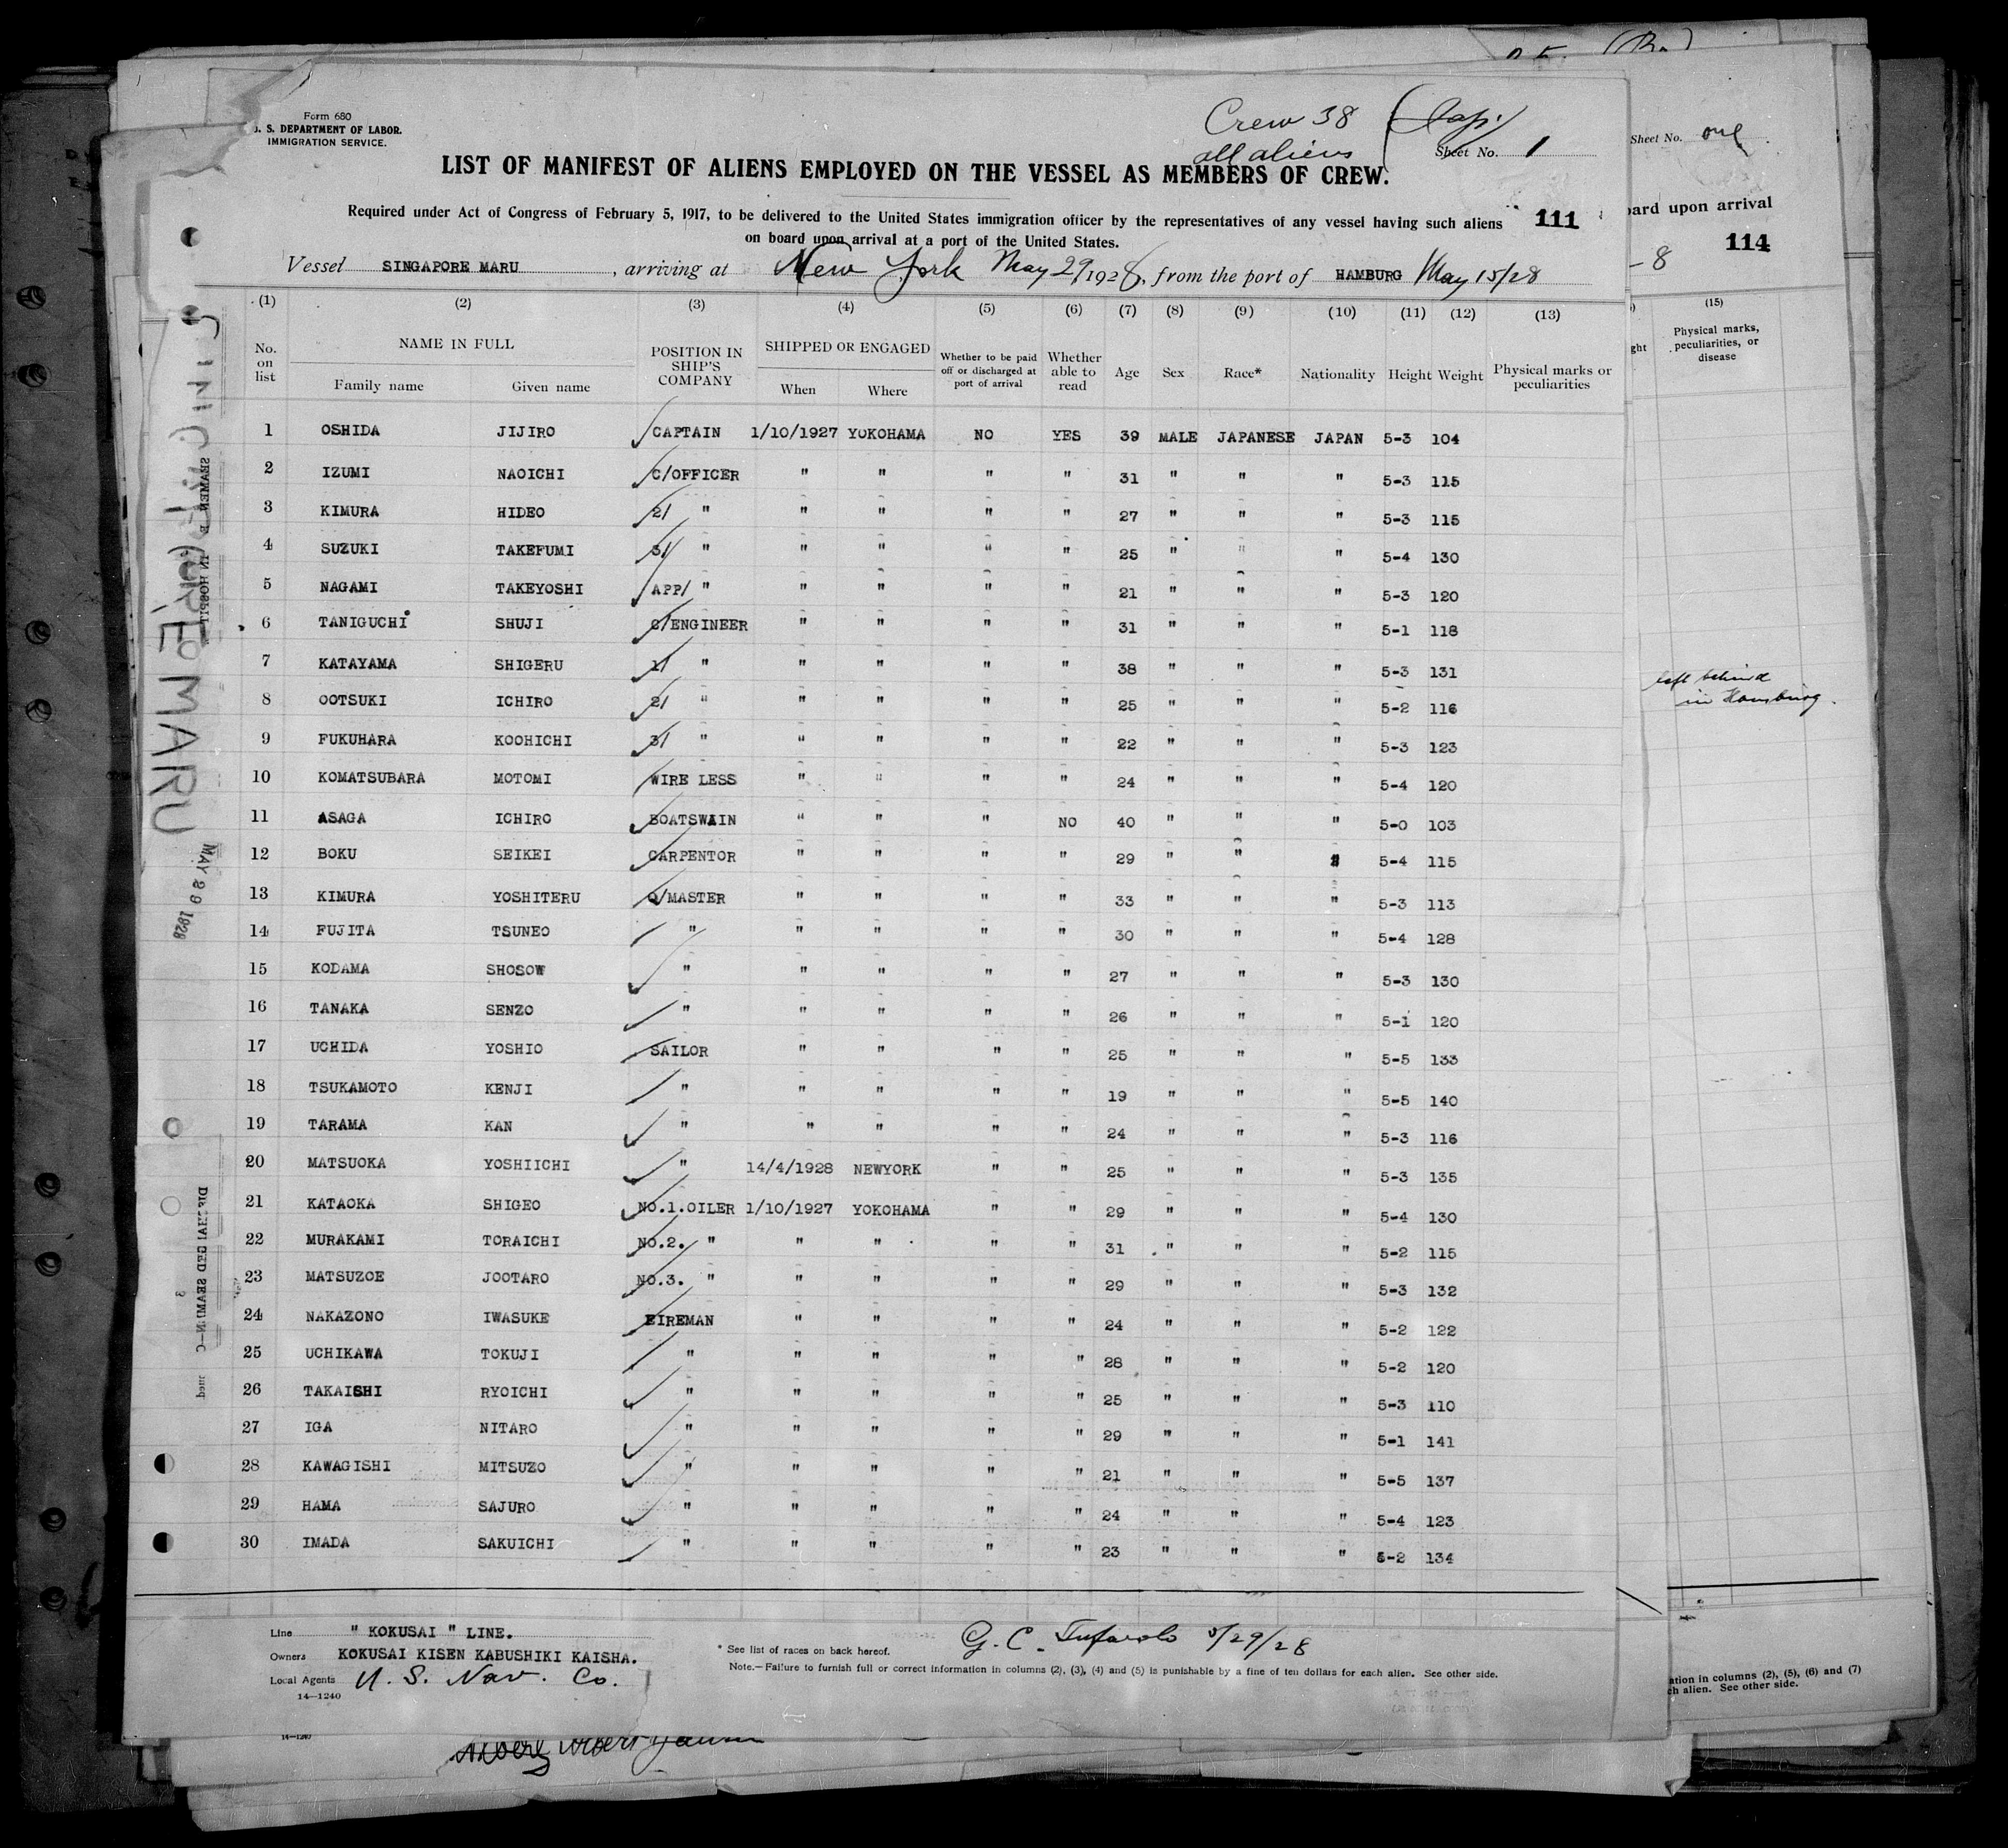 Form 680
U. S. DEPARTMENT OF LABOR.
IMMIGRATION SERVICE.
Crew 38 (Jap.)
all aliens
Sheet No. 1
LIST OF MANIFEST OF ALIENS EMPLOYED ON THE VESSEL AS MEMBERS OF CREW.
Required under Act of Congress of February 5, 1917, to be delivered to the United States immigration officer by the representatives of any vessel having such aliens
on board upon arrival at a port of the United States.
111
Vessel SINGAPORE MARU, arriving at New York May 29, 1928, from the port of HAMBURG May 15/28
(1) (2) (3) (4) (5) (6) (7) (8) (9) (10) (11) (12) (13)
No. on list NAME IN FULL Family name Given name POSITION IN SHIP'S COMPANY SHIPPED OR ENGAGED When Where Whether to be paid off or discharged at port of arrival Whether able to read Age Sex Race* Nationality Height Weight Physical marks or peculiarities
1 OSHIDA JIJIRO CAPTAIN 1/10/1927 YOKOHAMA NO YES 39 MALE JAPANESE JAPAN 5-3 104
2 IZUMI NAOICHI C/OFFICER " " " " 31 " " " 5-3 115
3 KIMURA HIDEO 2/ " " " " " 27 " " " 5-3 115
4 SUZUKI TAKEFUMI 3/ " " " " " 25 " " " 5-4 130
5 NAGAMI TAKEYOSHI APP/ " " " " " 21 " " " 5-3 120
6 TANIGUCHI SHUJI C/ENGINEER " " " " 31 " " " 5-1 118
7 KATAYAMA SHIGERU 1/ " " " " " 38 " " " 5-3 131
8 OOTSUKI ICHIRO 2/ " " " " " 25 " " " 5-2 116
9 FUKUHARA KOOHICHI 3/ " " " " " 22 " " " 5-3 123
10 KOMATSUBARA MOTOMI WIRE LESS " " " " 24 " " " 5-4 120
11 ASAGA ICHIRO BOATSWAIN " " " NO 40 " " " 5-0 103
12 BOKU SEIKEI CARPENTOR " " " " 29 " " " 5-4 115
13 KIMURA YOSHITERU Q/MASTER " " " " 33 " " " 5-3 113
14 FUJITA TSUNEO " " " " " 30 " " " 5-4 128
15 KODAMA SHOSOW " " " " " 27 " " " 5-3 130
16 TANAKA SENZO " " " " " 26 " " " 5-1 120
17 UCHIDA YOSHIO SAILOR " " " " 25 " " " 5-5 133
18 TSUKAMOTO KENJI " " " " " 19 " " " 5-5 140
19 TARAMA KAN " " " " " 24 " " " 5-3 116
20 MATSUOKA YOSHIICHI " 14/4/1928 NEWYORK " " 25 " " " 5-3 135
21 KATAOKA SHIGEO NO.1.OILER 1/10/1927 YOKOHAMA " " 29 " " " 5-4 130
22 MURAKAMI TORAICHI NO.2. " " " " " 31 " " " 5-2 115
23 MATSUZOE JOOTARO NO.3. " " " " " 29 " " " 5-3 132
24 NAKAZONO IWASUKE FIREMAN " " " " 24 " " " 5-2 122
25 UCHIKAWA TOKUJI " " " " " 28 " " " 5-2 120
26 TAKAISHI RYOICHI " " " " " 25 " " " 5-3 110
27 IGA NITARO " " " " " 29 " " " 5-1 141
28 KAWAGISHI MITSUZO " " " " " 21 " " " 5-5 137
29 HAMA SAJURO " " " " " 24 " " " 5-4 123
30 IMADA SAKUICHI " " " " " 23 " " " 5-2 134
Line " KOKUSAI " LINE.
Owners KOKUSAI KISEN KABUSHIKI KAISHA.
Local Agents U. S. Nav. Co.
14-1240
* See list of races on back hereof.
G. C. 5/29/28
Note.—Failure to furnish full or correct information in columns (2), (3), (4) and (5) is punishable by a fine of ten dollars for each alien. See other side.
SINGAPORE MARU
MAY 29 1928
Sheet No. one
oard upon arrival
114
-8
(15)
ght
Physical marks, peculiarities, or disease
left behind
in Hamburg.
ation in columns (2), (5), (6) and (7)
ch alien. See other side.
14-1240